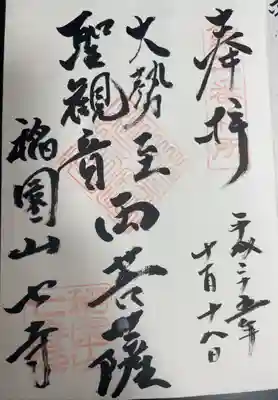 奉拝
平成二十五年
十月十八日
大勢至両菩薩
聖観音
稲園山七寺